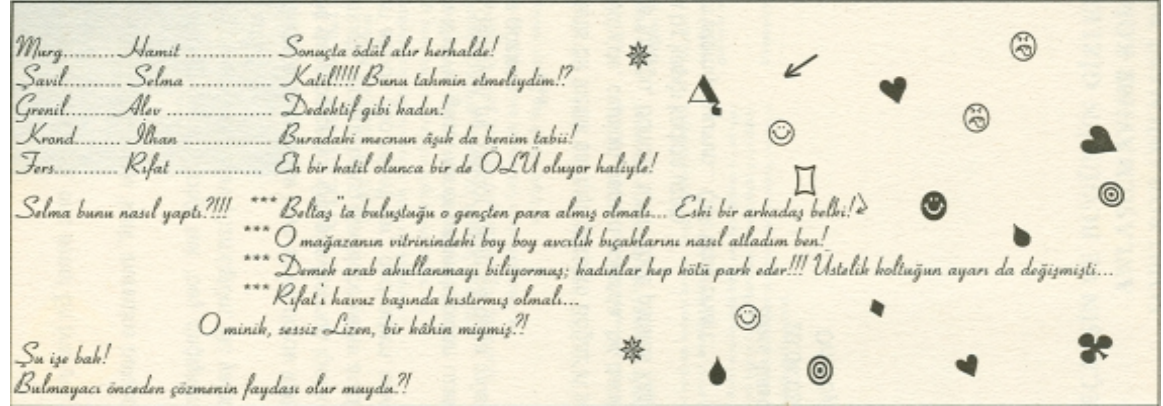 Murg......... Hamit .............. Sonuçta ödül alır herhalde!
Şavil......... Selma .............. Katil!!!! Bunu tahmin etmeliydim!?
Grenil........Alev .................. Dedektif gibi kadın!
Krond........ İlhan ............... Buradaki mecnun âşık da benim tabii!
Fers........... Rıfat ............... Eh bir katil olunca bir de ÖLÜ oluyor haliyle!
Selma bunu nasıl yaptı?!!! *** Beltaş"ta buluştuğu o gençten para almış olmalı... Eski bir arkadaş belki!
*** O mağazanın vitrinindeki boy boy avcılık bıçaklarını nasıl atladım ben!
*** Demek arab akullanmayı biliyormuş; kadınlar hep kötü park eder!!! Üstelik koltuğun ayarı da değişmişti...
*** Rıfat'ı havuz başında kıstırmış olmalı...
O minik, sessiz Lizen, bir kâhin miymiş?!
Şu işe bak!
Bulmayacı önceden çözmenin faydası olur muydu?!